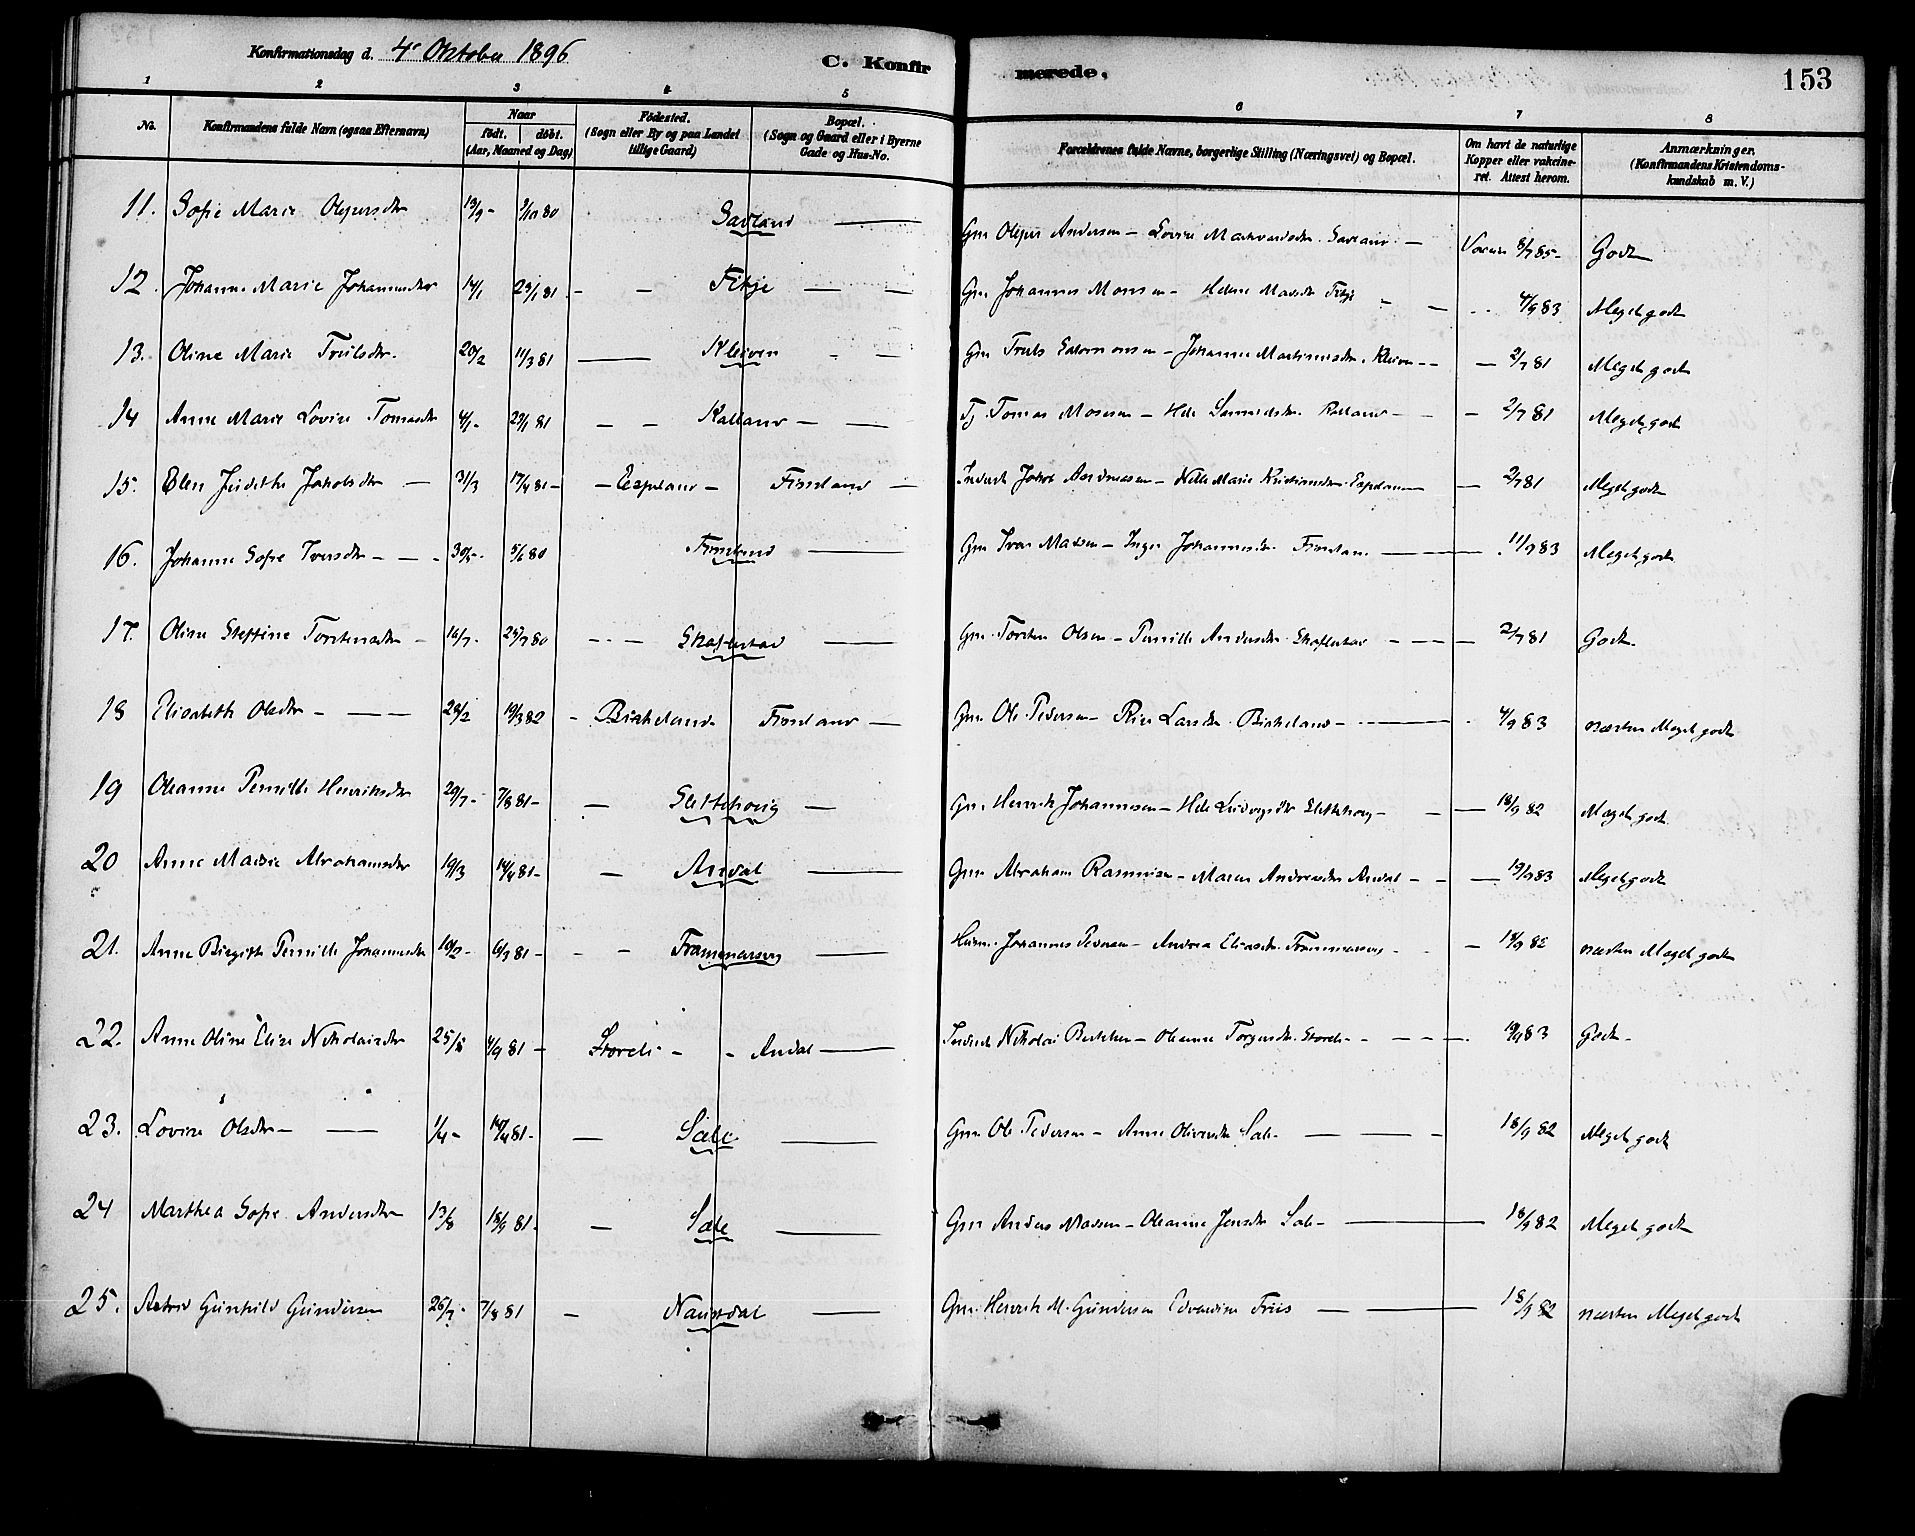 Konfirmationsdag d. 4de Oktober 1896
C. Konfirmerede.
153
1 2 3 4 5 6 7 8
No.
Konfirmandens fulde Navn (ogsaa Efternavn)
Naar
født. døbt.
(Aar, Maaned og Dag)
Fødested.
(Sogn eller By og paa Landet
tillige Gaard)
Bopæl.
(Sogn og Gaard eller i Byerne
Gade og Hus-No.
Forældrenes fulde Navne, borgerlige Stilling (Næringsvei) og Bopæl.
Om havt de naturlige
Kopper eller vakcine-
ret. Attest herom.
Anmærkninger.
(Konfirmandens Kristendoms-
kundskab m. V.)
11. Sofie Marie Olgersdtr 19/9- 3/10 80 Savland — Gm Andersen — Lovise Savland — 8/7 85- Godt
12. Johanne Marie Johannesdtr 14/1 23/1 81 - — Fitje — — Gm Johannes Monsen — Helene Madsdtr Fitje — — 4/9 83 Meget godt
13. Oline Marie Trulsdtr. 20/2 11/3 81 — Kleiven - - Gm Truls Salomonsen — Johanne Martinusdtr. Kleiven -- — 2/7 81 Meget godt
14 Anne Marie Lovise Tomasdtr 4/1- 23/1 81 — — Kalland — — Tj. Tomas Mosesen — Kalland — — 2/7 81 Meget godt
15. Elen Judithe Jakobsdtr — 31/3 17/4 81- — Espeland — Fimland — Inderst Jakob Andreassen — Nille Marie Kristiansdtr Espeland — — 2/7 81 Meget godt
16. Johanne Sofie Iversdtr — — - 30/5- 5/6 80 Fimland — Gm Iver Madsen — Inger Johannesdtr Fimland — 11/9 83 Meget godt
17. Oline Steffine Torstensdtr - 16/7- 25/7 80 -- — Skaflestad — Gm Torsten Olsen — Pernille Andersdtr Skaflestad - — — — 2/7 81 Godt.
18 Elisabeth Olsdtr - — — 28/2 19/3 82 - Birkeland Fimland — Gm. Ole Pedersen — Larsdtr Birkeland — 4/9 83 næsten Meget godt
19 Oleanne Pernille Henriksdtr 20/7- 7/8 81- — Slettehoug — Gm. Henrik Johannesen — Ludvigsdtr Slettehoug — — 18/9 82 Meget godt.
20 Anne Marie Abrahamsdtr 19/3 14/4 81- — Andal — Gm Abraham Rasmusen — Andreasdtr Andal - - — 19/9 83 Meget godt
21. Anne Birgitte Pernille Johannesdtr 10/2- 6/3 81- - - Frammarsvig — Johannes Pedersen — Andrea Eliasdtr. Frammarsvig - - — 18/9 82 næsten Meget godt
22. Anne Oline Elise Nikolaisdtr 25/8 4/9 81 - Storeli - - Andal — Inderst Nikolai — Oleanne Torgersdtr. Storeli - - — - —. 19/9 83 Godt -
23. Lovise Olsdtr — — 1/4- 14/4 81- — Sæle — Gm Ole Pedersen — Anne Oliversdtr Sæle- — — - 18/9 82 Meget godt
24 Marthea Sofie Andersdtr 13/8 18/9 81- — Sæle — Gm Anders Madsen — Oleanne Jensdtr Sæle — 18/9 82 Meget godt
25. Astrid Gunhild Gundersen 26/7- 7/8 81 — Naustdal — Gm. Henrik M. Gundersen Edvardine Friis — — 18/9 82 næsten Meget godt